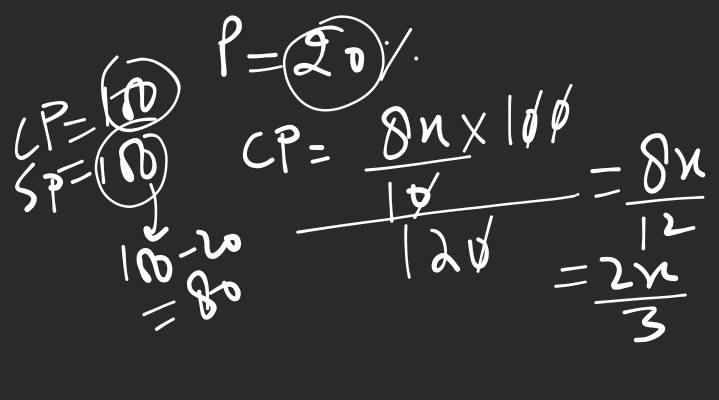 P = 20%
CP = 100
SP = 100
100 - 20
= 80
CP = 8x × 100
10
120
= 8x
12
= 2x
3